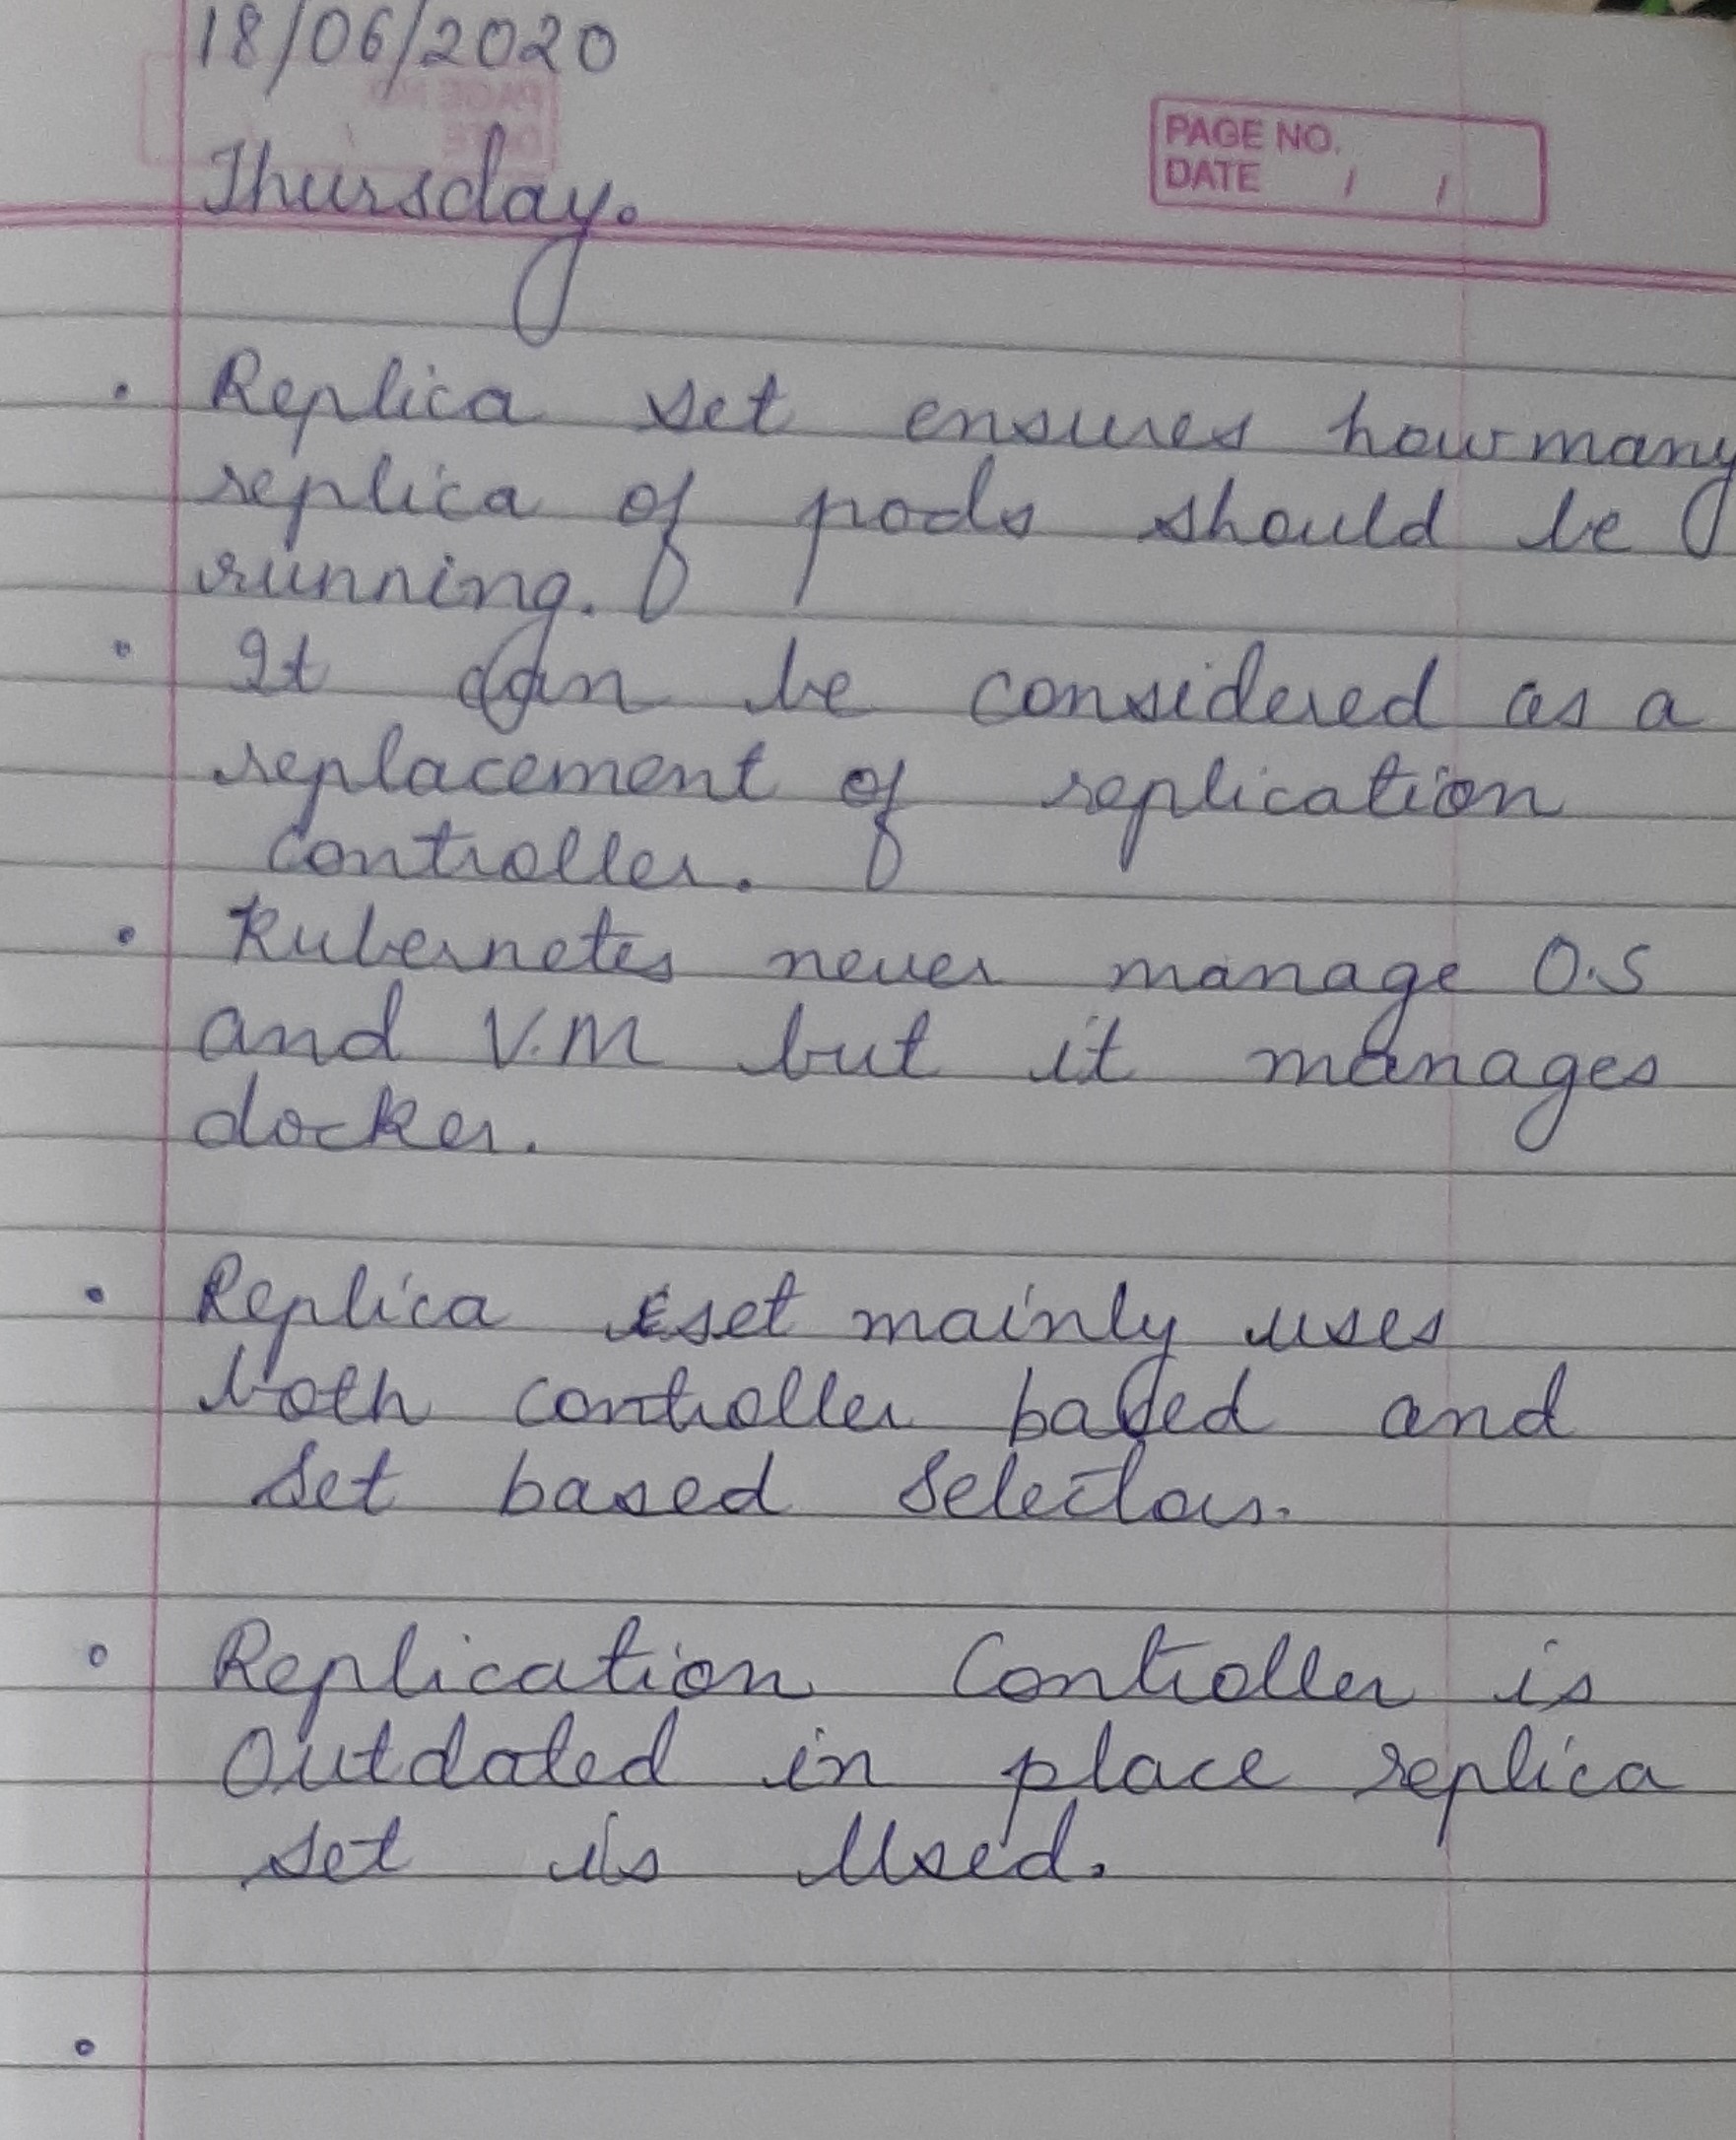 18/06/2020
PAGE NO.
DATE / /
Thursday.
• Replica set ensures how many
replica of pods should be
running.
• It can be considered as a
replacement of replication
controller.
• Kubernetes never manage O.S
and V.M but it manages
docker.
• Replica set mainly uses
both controller based and
set based selectors.
• Replication Controller is
Outdated in place replica
set is Used.
•